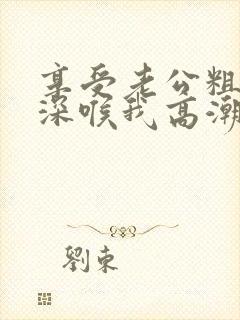 享受老公粗
深喉我高潮
劉東